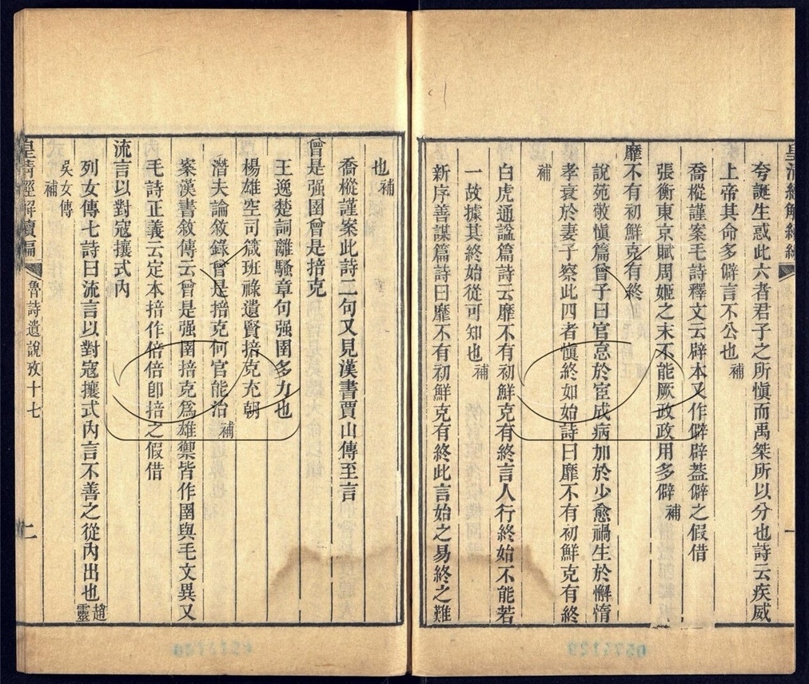 皇清經解續編
一
夸誕生或此六者君子之所慎而禹桀所以分也詩云疾威
上帝其命多僻言不公也補
喬樅謹案毛詩釋文云辟本又作僻辟葢僻之假借
張衡東京賦周姬之末不能厥政政用多僻補
靡不有初鮮克有終
說苑敬慎篇曾子曰官怠於宦成病加於少愈禍生於懈惰
孝衰於妻子察此四者慎終如始詩曰靡不有初鮮克有終
補
白虎通諡篇詩云靡不有初鮮克有終言人行終始不能若
一故據其終始從可知也補
新序善謀篇詩曰靡不有初鮮克有終此言始之易終之難
也補
喬樅謹案此詩二句又見漢書賈山傳至言
曾是强圉曾是掊克
王逸楚詞離騷章句强圉多力也
楊雄空司箴班祿遺賢掊克充朝
潛夫論敘錄曾是掊克何官能治補
案漢書敘傳云曾是强圉掊克爲雄禦皆作圉與毛文異又
毛詩正義云定本掊作倍倍卽掊之假借
流言以對寇攘式內
列女傳七詩曰流言以對寇攘式內言不善之從內出也趙靈
吳女傳補
皇清經解續編
魯詩遺說攷十七
二